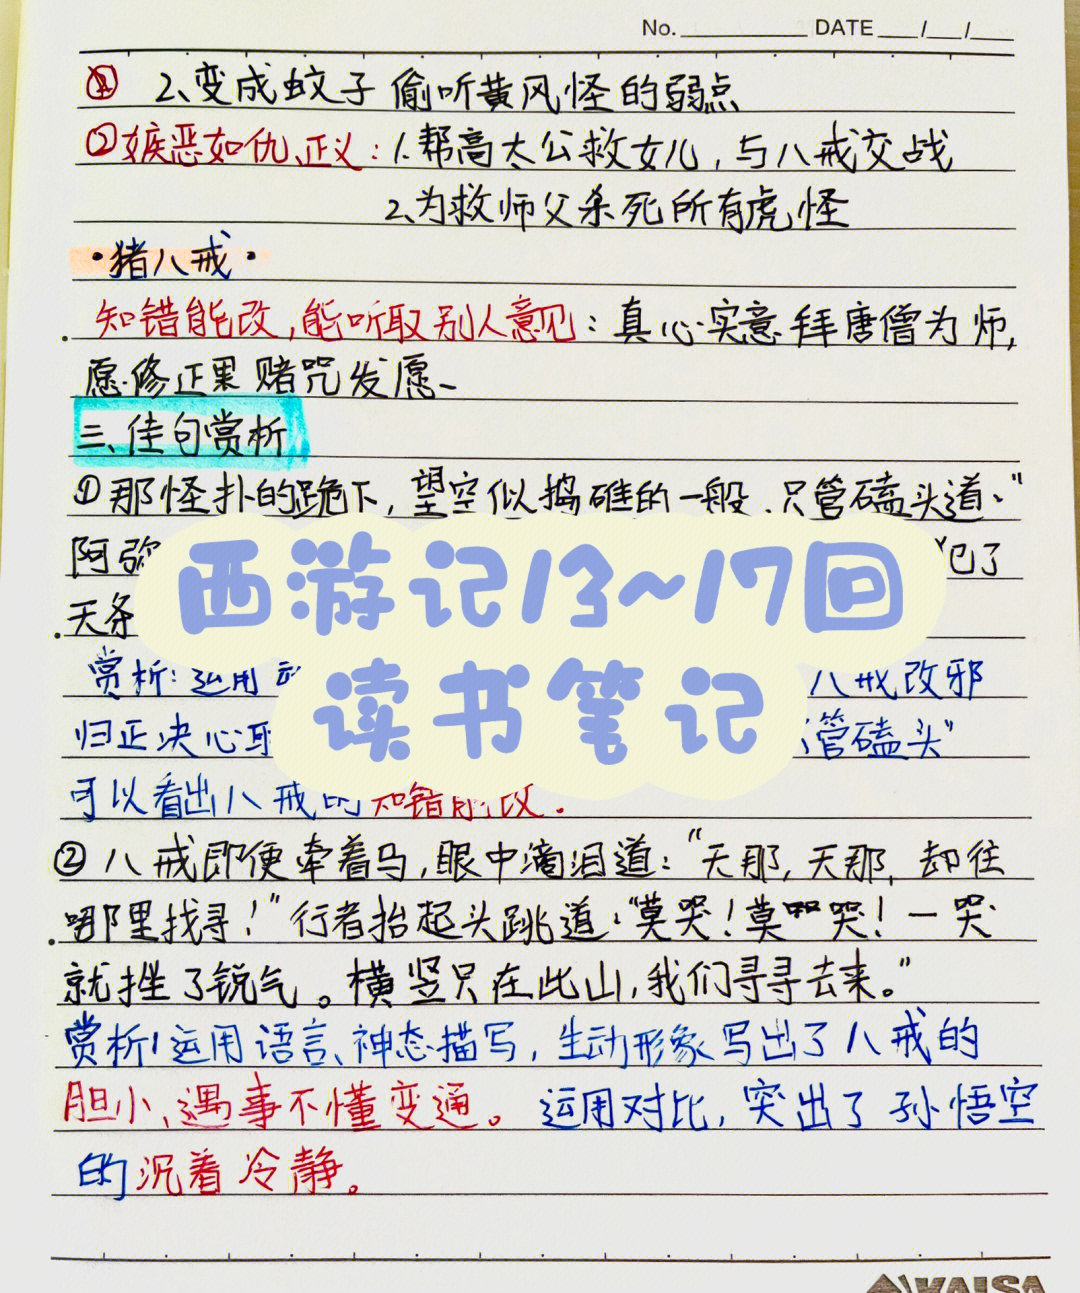 No. DATE / /
① 2、变成蚊子偷听黄风怪的弱点
②嫉恶如仇、正义:1.帮高太公救女儿,与八戒交战
2、为救师父杀死所有虎怪
·猪八戒·
知错能改,能听取别人意见:真心实意拜唐僧为师,
愿修正果赌咒发愿
三、佳句赏析
①那怪扑的跪下,望空似捣碓的一般,只管磕头道:“
阿弥
犯了
天条
西游记13~17回
赏析:运用
八戒改邪
读书笔记
归正决心
管磕头”
可以看出八戒的知错能改.
②八戒即便牵着马,眼中滴泪道:“天那,天那,却往
哪里找寻!”行者抬起头跳道:“莫哭!莫哭!一哭
就挫了锐气。横竖只在此山,我们寻寻去来。”
赏析:运用语言、神态描写,生动形象写出了八戒的
胆小、遇事不懂变通。运用对比,突出了孙悟空
的沉着冷静。
KAISA